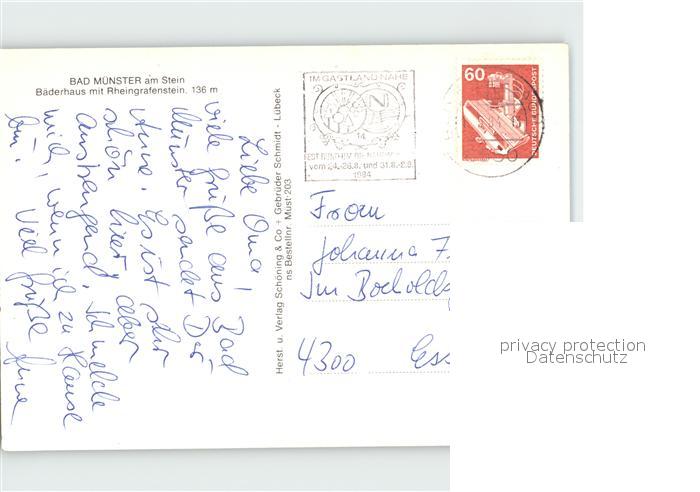 BAD MÜNSTER am Stein
Bäderhaus mit Rheingrafenstein. 136 m
Liebe Oma!
Viele Grüße aus Bad
Münster sendet Dir
Anne. Es ist sehr
schön hier, aber
anstrengend. Ich melde
mich, wenn ich zu Hause
bin! Viel Grüße Anne
Herst. u. Verlag Schöning & Co + Gebrüder Schmidt - Lübeck
ns Bestellnr. Must 203
IM GASTLAND NAHE
14
vom 24.-26.8. und 31.8.-2.9.
1984
60
DEUTSCHE BUNDESPOST
Frau
Johanna F.
Im Bocholds
4300 Ess
privacy protection
Datenschutz